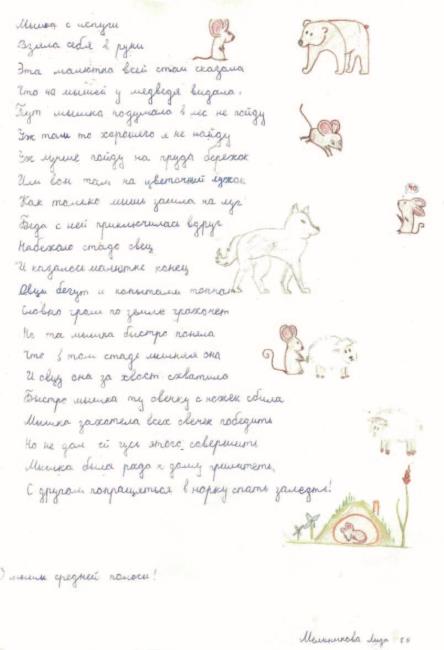 Мышка с испуги
Взяла себя в руки
Эта малютка всей стаи сказала
Что на мышей у медведя видала.
Тут мышка подумала в лес не пойду
Уж там то хорошего я не найду
Уж лучше пойду на пруда бережок
Или вон там на цветочний лужок
Как только мышь зашла на луг
Беда с ней приключилась вдруг
Набежало стадо овец
И казалось малютке конец
Овцы бегут и копытами топчат
Словно гром по земле грохочет
Но та мышка быстро поняла
Что в том стаде лишняя она
И овцу она за хвост схватила
Быстро мышка ту овечку с ножек сбила
Мышка захотела всех овечек победить
Но не дал ей гусь этого совершить
Мышка была рада к дому прилететь,
С другом попращяться в норку спать залезть!
О мыши средней полосы!
Мельникова Лиза